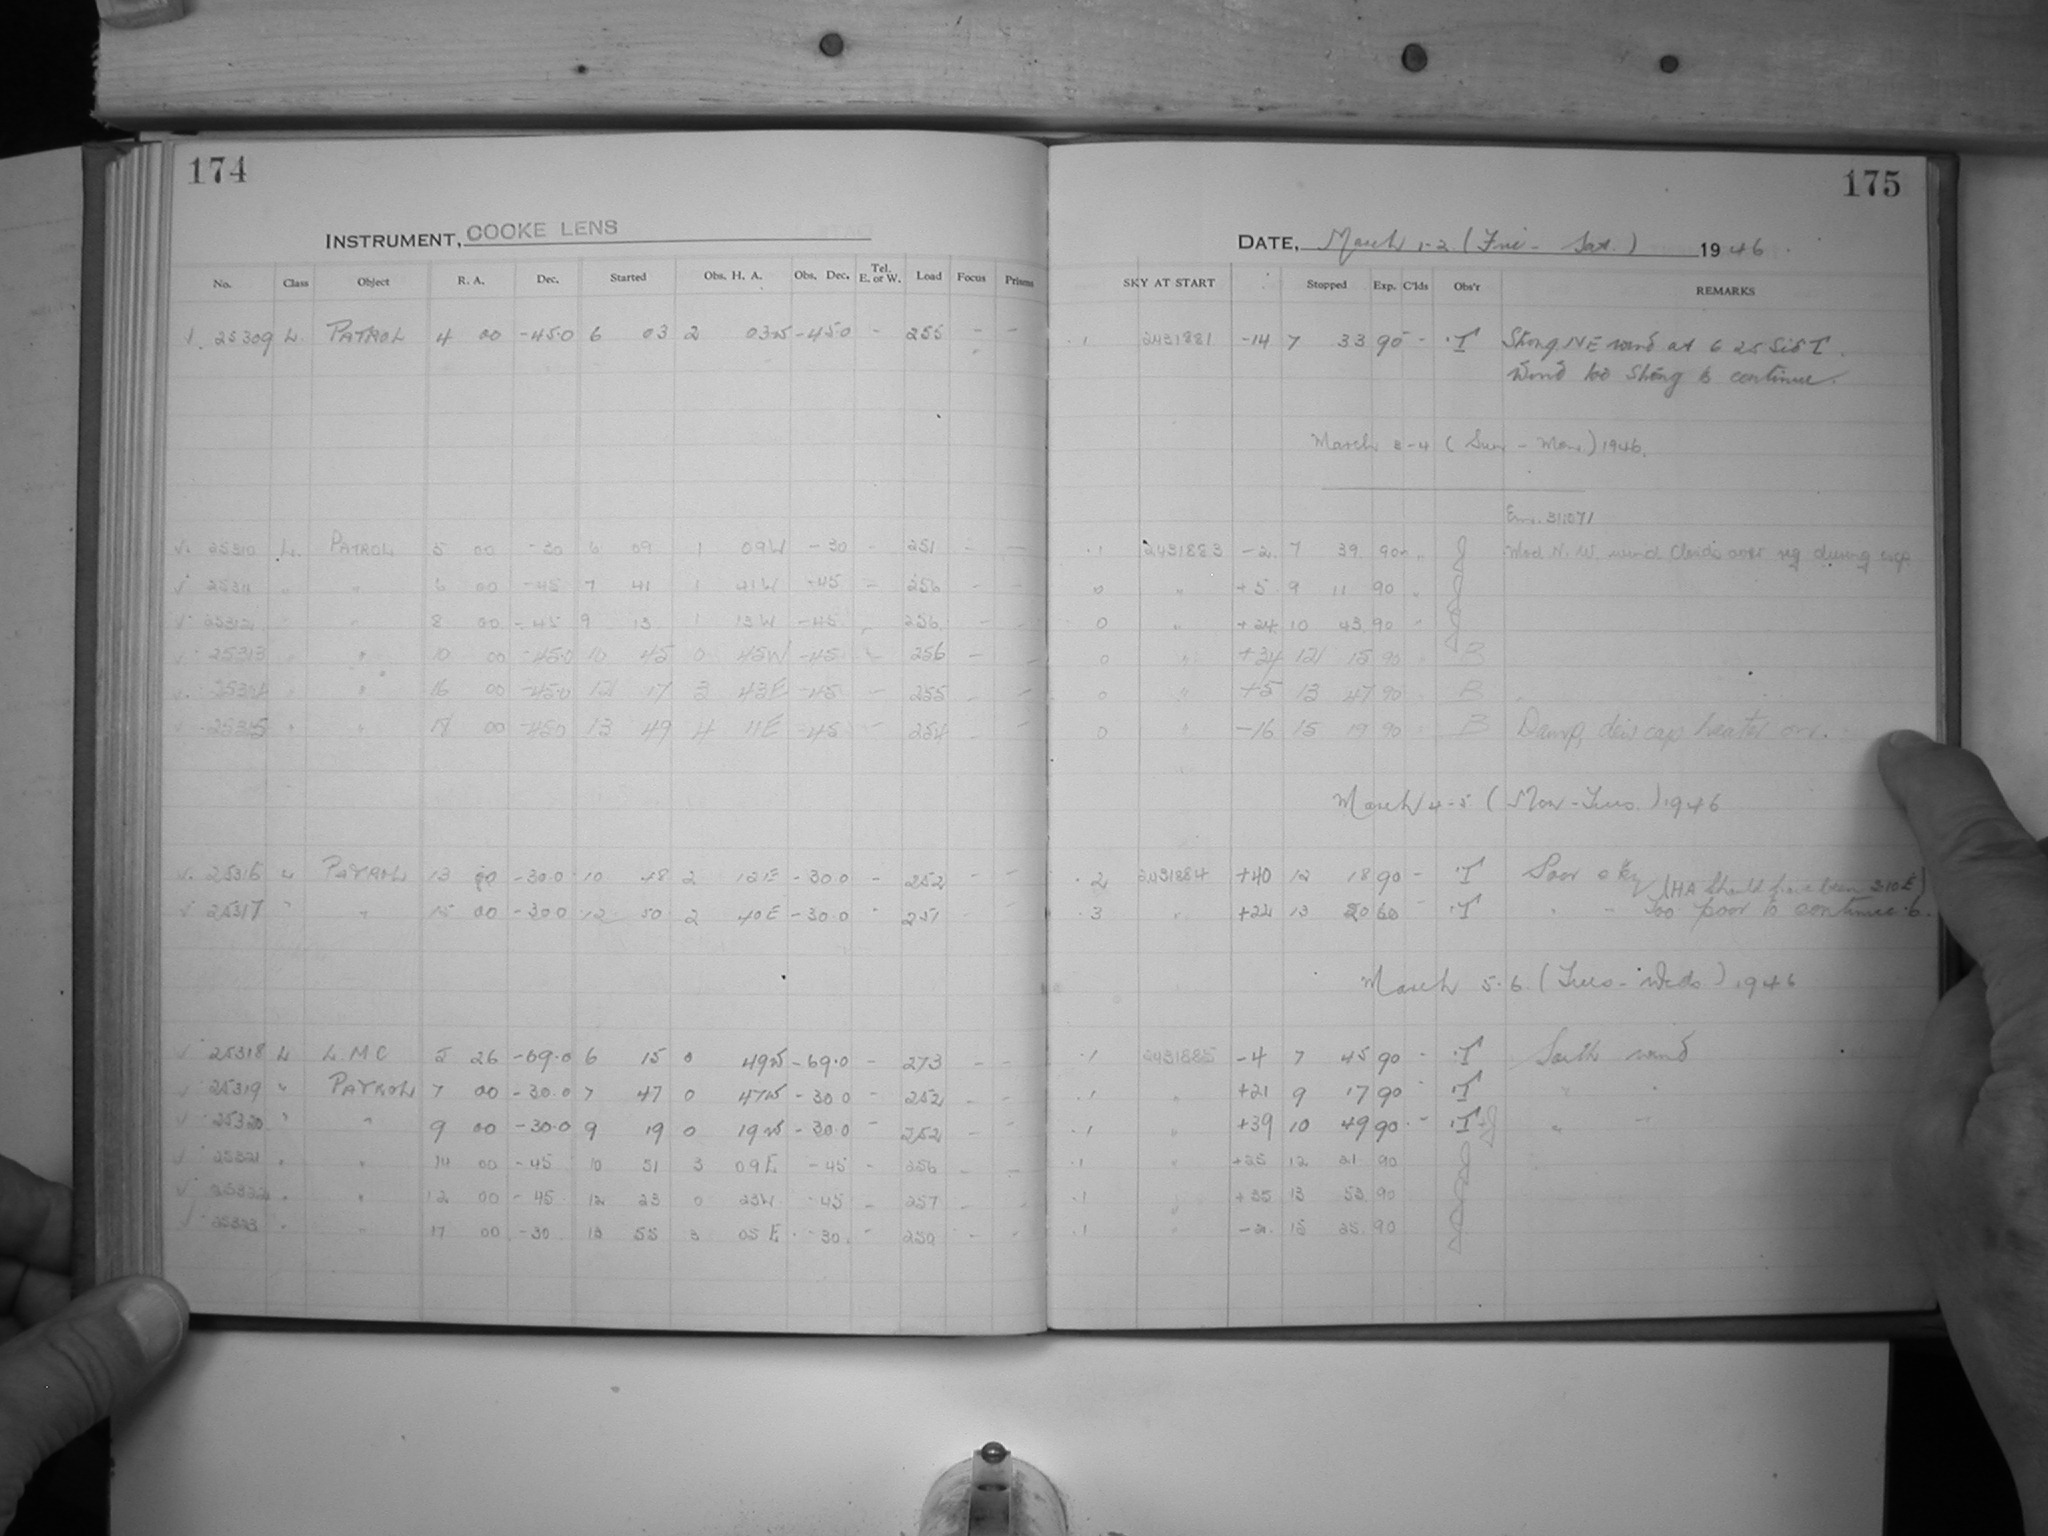 174
INSTRUMENT, COOKE LENS
No. Class Object R. A. Dec. Started Obs. H. A. Obs. Dec. Tel. E. or W. Load Focus Prisms
√. 25309 L PATROL 4 00 -45.0 6 03 2 03W -45.0 - 255 - -
√. 25310 L. PATROL 5 00 -30 6 09 1 09W -30 - 251 - -
√ 25311 " " 6 00 -45 7 41 1 41W -45 - 256 - -
√ 25312 " " 8 00 -45 9 13 1 13W -45 - 256 - -
√ 25313 " " 10 00 -45.0 10 45 0 45W -45 - 256 - -
√. 25314 " " 16 00 -45.0 12 17 3 43E -45 - 255 - -
√ 25315 " " 18 00 -45.0 13 49 4 11E -45 - 254 - -
√. 25316 " PATROL 13 00 -30.0 10 48 2 12E -30.0 - 252 - -
√ 25317 " " 15 00 -30.0 12 20 2 40E -30.0 - 251 - -
√ 25318 L L M C 5 26 -69.0 6 15 0 49W -69.0 - 273
√ 25319 " PATROL 7 00 -30.0 7 47 0 47W -30.0 - 252 - -
√ 25320 " " 9 00 -30.0 9 19 0 19W -30.0 - 252 - -
√ 25321 " " 14 00 -45 10 51 3 09E -45 - 256 - -
√ 25322 " " 12 00 -45 12 23 0 23W -45 - 257 - -
√ 25323 " " 17 00 -30 13 55 3 05E -30 - 250 - "
175
DATE, March 1-2 (Fri - Sat.) 1946.
SKY AT START Stopped Exp. C'lds Obs'r REMARKS
.1 2431881 -14 7 33 90 - .T Strong NE wind at 6 25 Sid T.
Wind too strong to continue.
March 3-4 (Sun - Mon) 1946.
Em. 311071
.1 2431883 -2 7 39 90 " J Mod N.W. wind Clouds over reg during exp
0 " +5 9 11 90 "
0 " +24 10 43 90 "
0 " +34 12 15 90 " B
0 " +5 13 47 90 B
0 " -16 15 19 90 B Damp, dew cap heater on.
March 4-5 (Mon - Tues.) 1946
.2 2431884 +40 12 18 90 - .T Poor sky (HA should have been 3 10 E)
.3 " +24 13 20 60 - .T " - Too poor to continue
March 5-6 (Tues - Weds) 1946
.1 2431885 -4 7 45 90 - .T South wind
.1 " +21 9 17 90 - .T " "
.1 " +39 10 49 90 - .T " "
.1 " +25 12 21 90
.1 " +35 13 53 90
.1 " -2 15 25 90